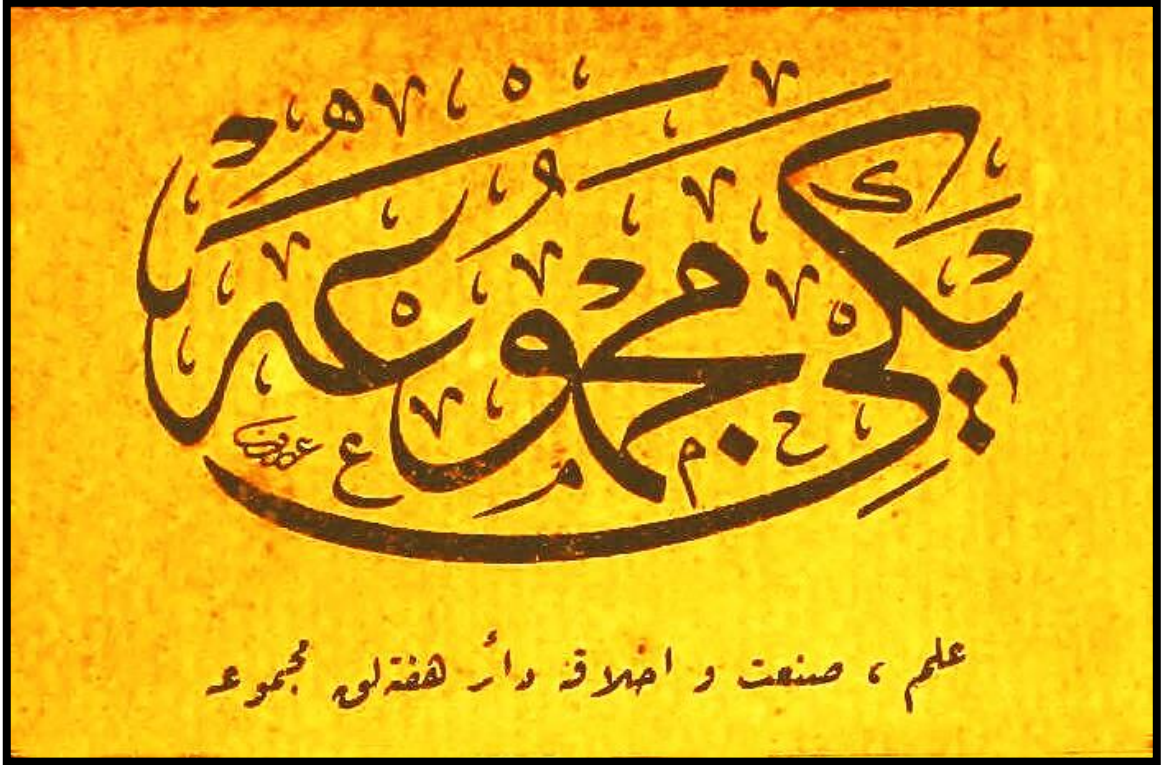 یکی مجموعه
علم ، صنعت و اخلاقه دائر هفته‌لق مجموعه